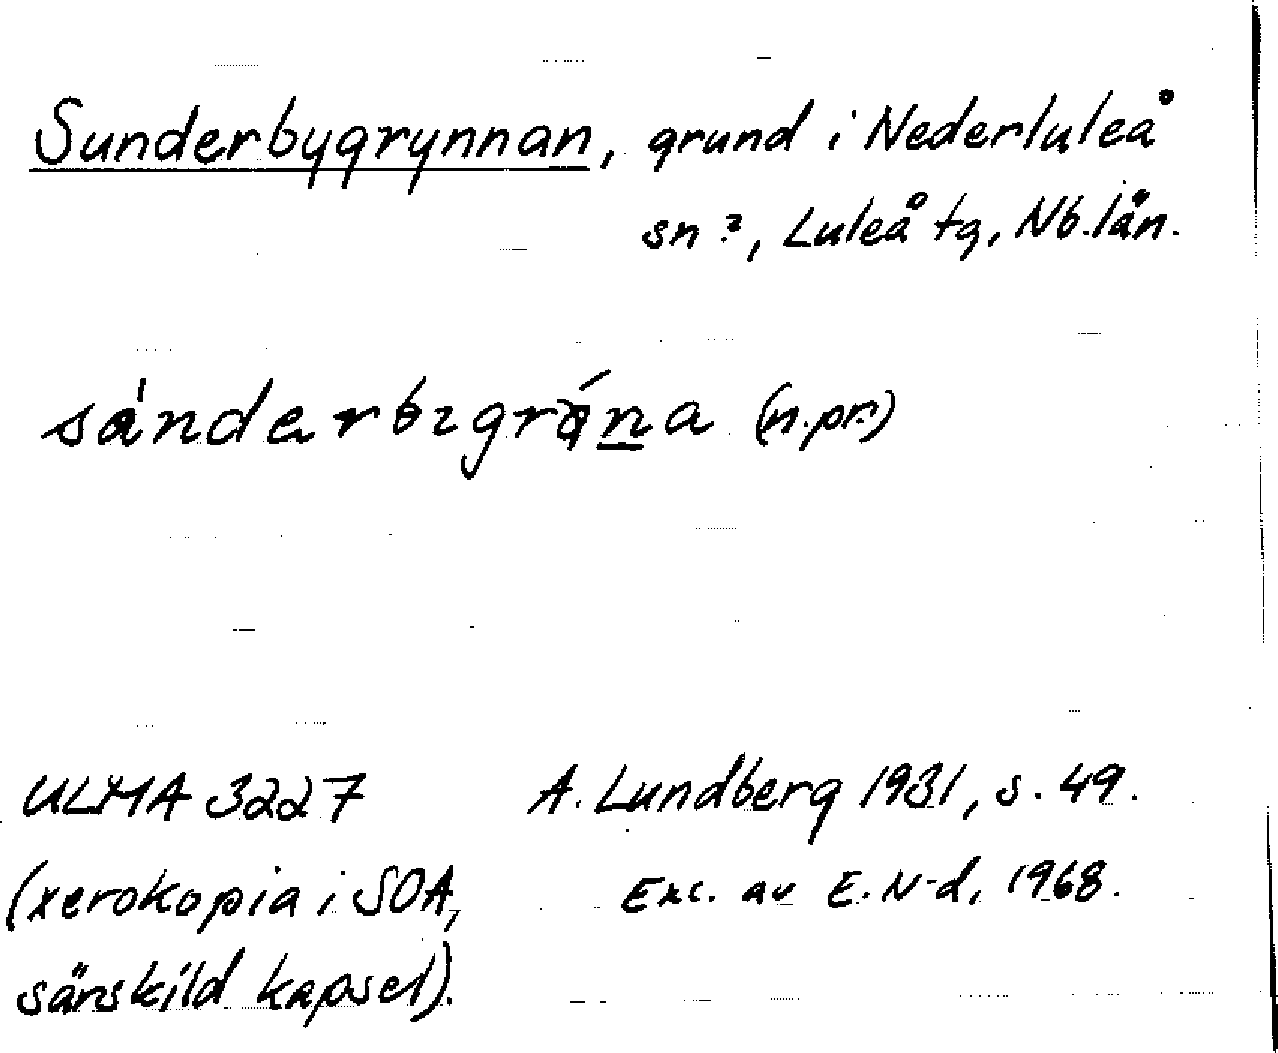 Sunderbygrynnan, grund i Nederluleå
sn?, Luleå tg, Nb. län.
(n.pr.)
ULMA 3227 A. Lundberg 1931, s. 49.
(xerokopia i SOA, Exc. av E. N-d, 1968.
särskild kapsel).